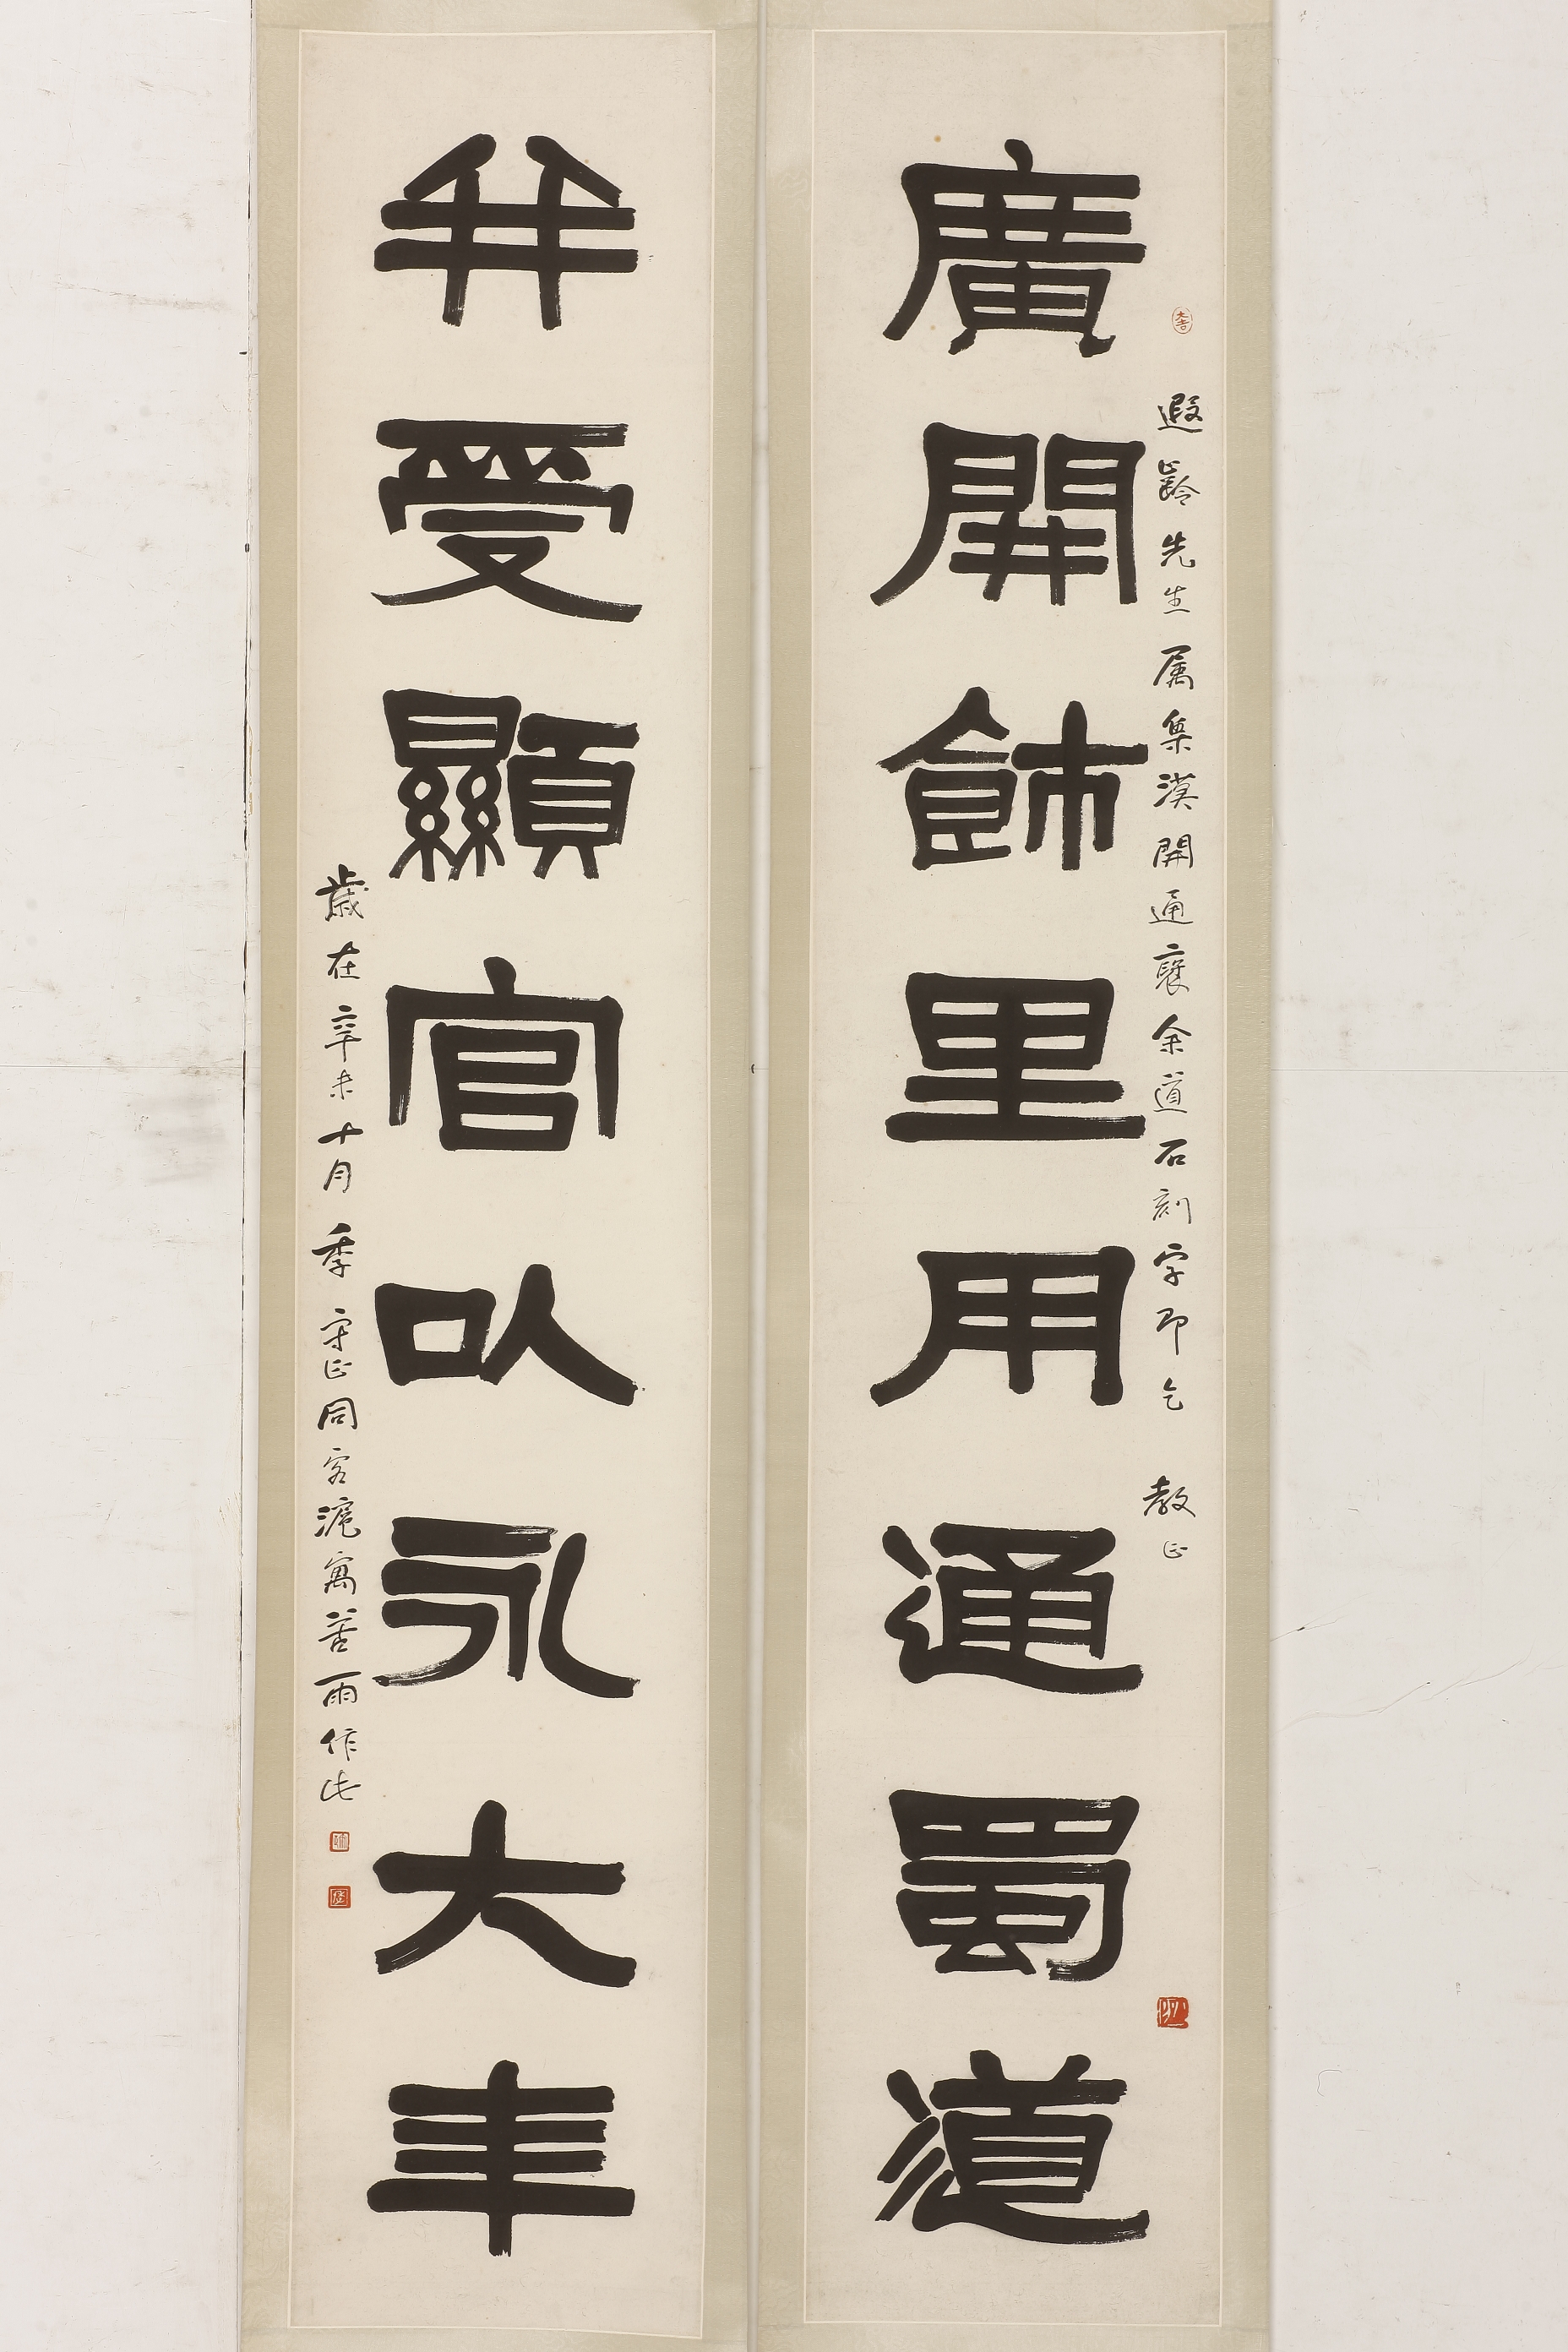 大吉
遐齡先生属集漢開通襃余道石刻字即乞 教正
廣開飾里用通蜀道
并受顯官以永大年
歲在辛未十月季守正同客滬寓苦雨作此